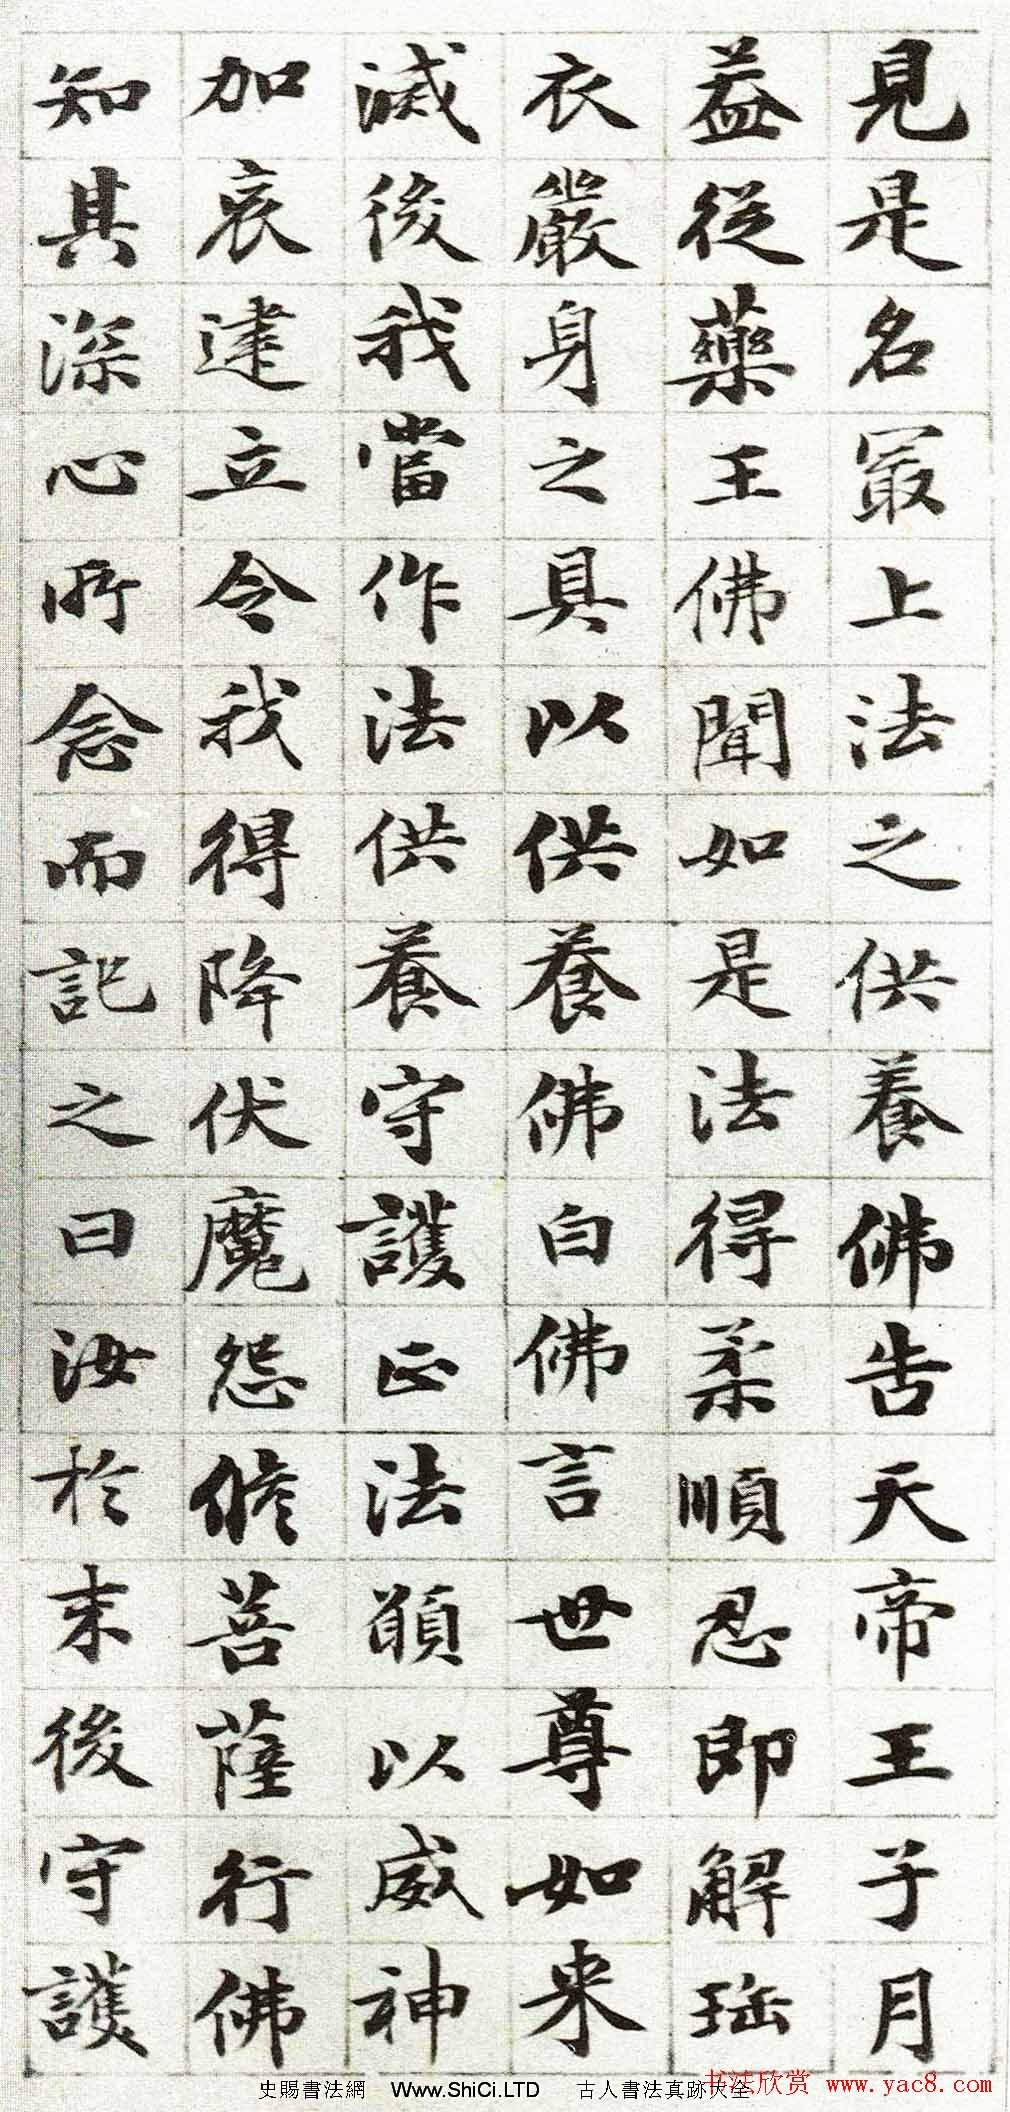 見是名冣上法之供養佛告天帝王子月
葢從藥王佛聞如是法得柔順忍即解珤
衣嚴身之具以供養佛白佛言世尊如来
滅後我當作法供養守護正法願以威神
加哀建立令我得降伏魔怨脩菩薩行佛
知其深心所念而記之曰汝於末後守護
史賜書法網 Www.ShiCi.LTD 古人書法真跡大全
书法欣赏 www.yac8.com